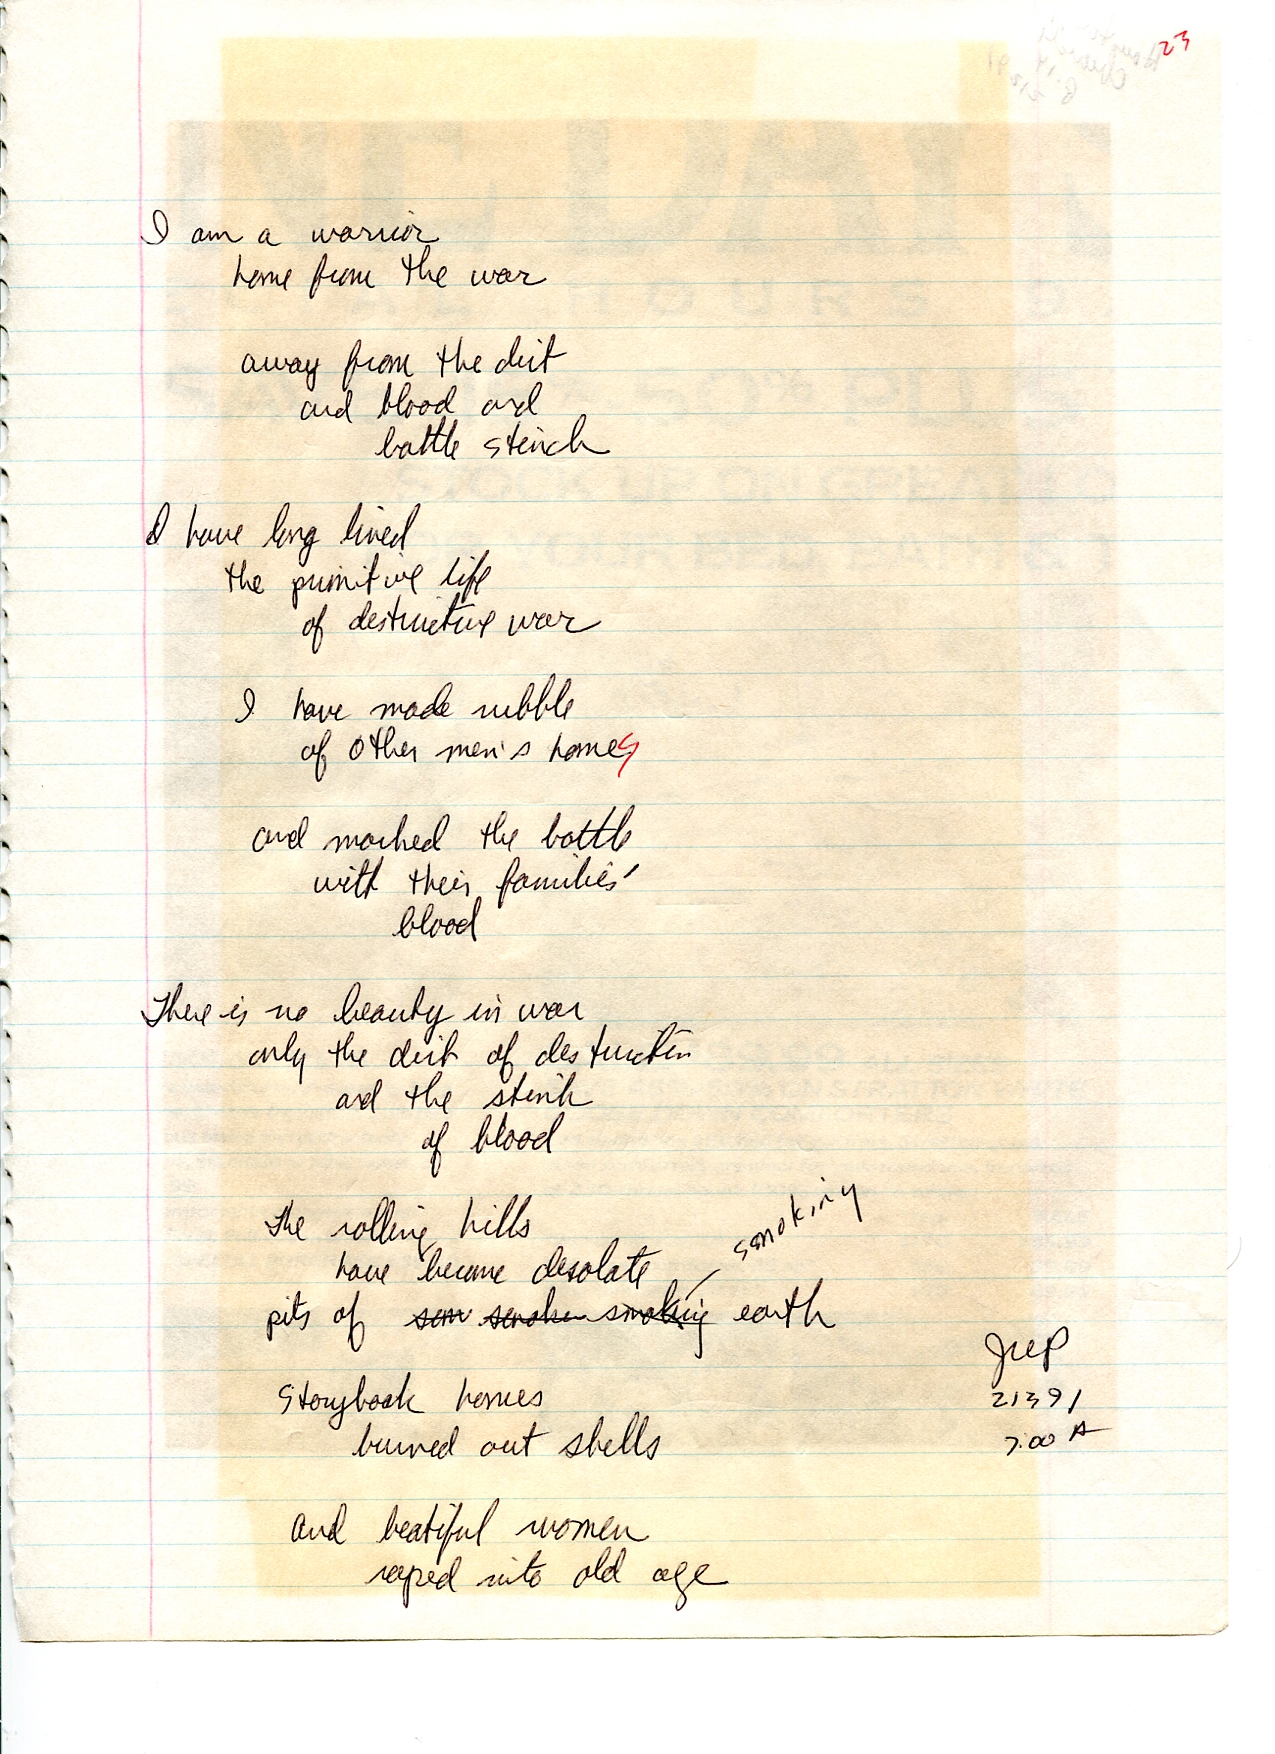 23
I am a warrior
home from the war
away from the dirt
and blood and
battle stench
I have long lived
the primitive life
of destructive war
I have made rubble
of other men's homes
and marked the battle
with their families'
blood
There is no beauty in war
only the dirt of destruction
and the stink
of blood
The rolling hills
have become desolate
smoking
pits of smoking earth
Storybook homes
burned out shells
and beatiful women
raped into old age
JWP
21391
7:00 A